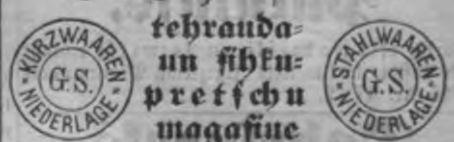 KURZWAAREN
NIEDERLAGE
G.S.
tehrauda=
un sihku=
pretschu
magasine
STAHLWAAREN
NIEDERLAGE
G.S.